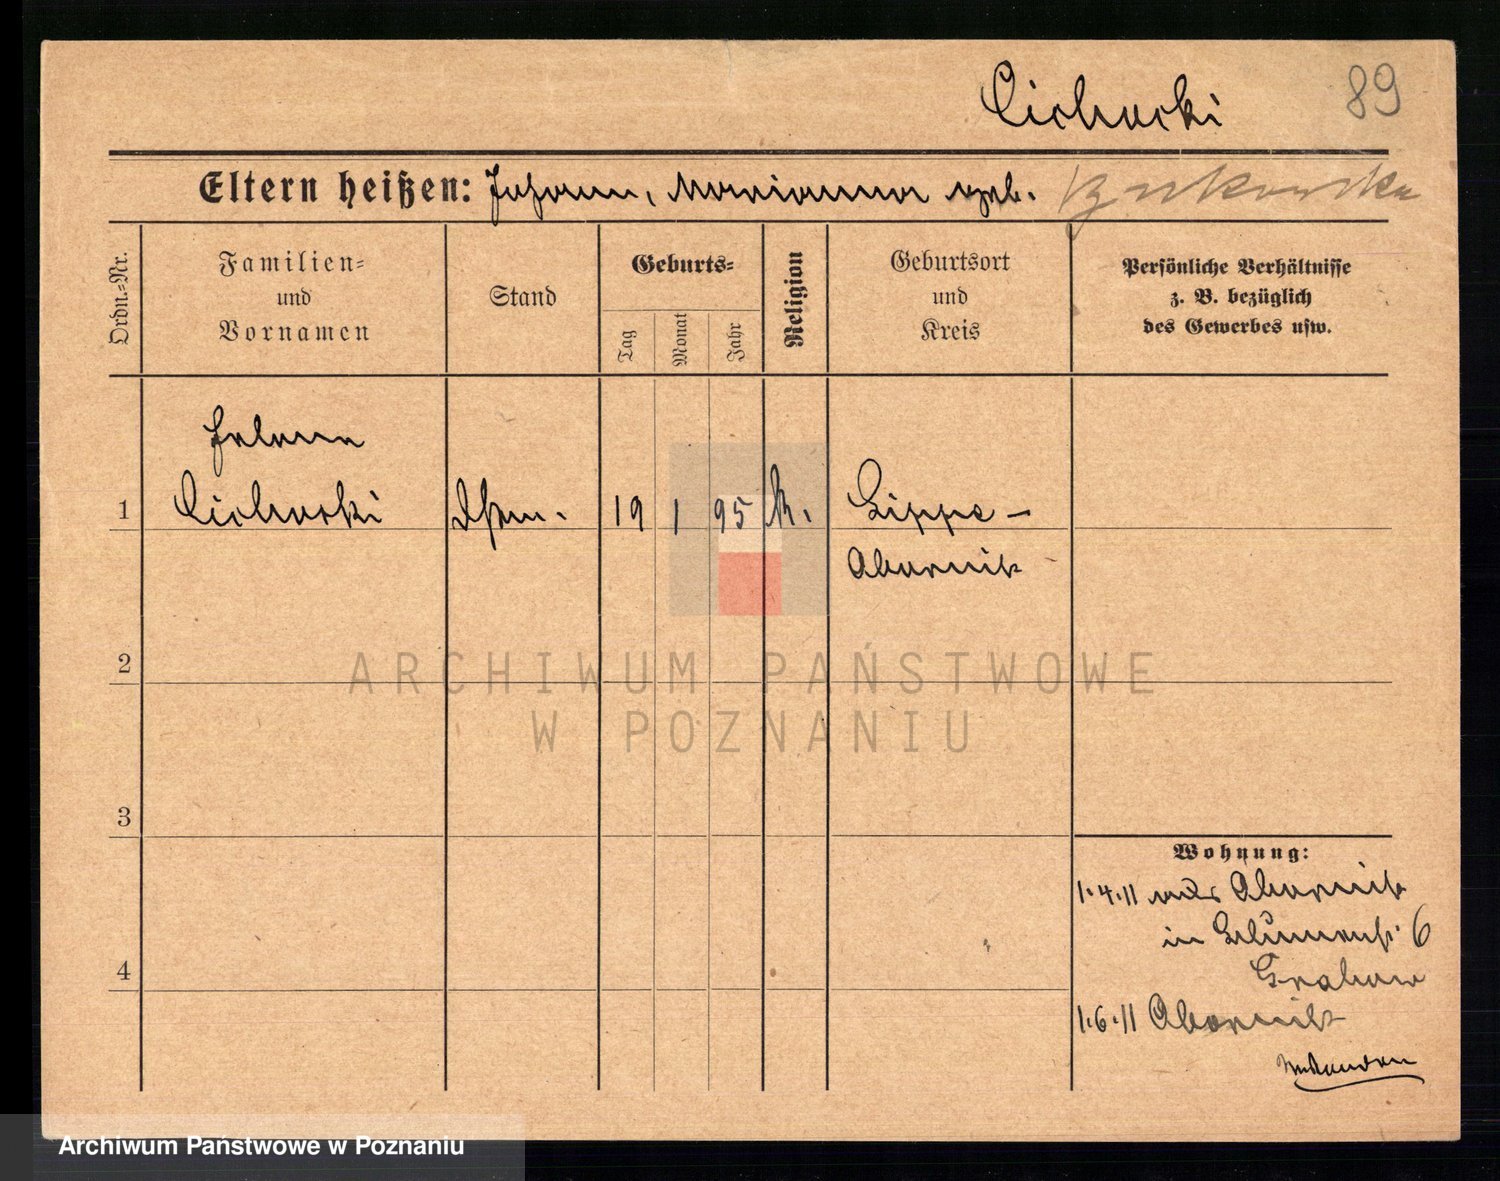 Cichocki 89
Eltern heißen: Johann, Marianna geb.
Ordn.-Nr.
Familien-
und
Vornamen
Stand
Geburts-
Tag
Monat
Jahr
Religion
Geburtsort
und
Kreis
Persönliche Verhältnisse
z. B. bezüglich
des Gewerbes usw.
Helene
1 Cichocki 19 1 95 K. Lippe-
Obornik
2
3
4
Wohnung:
1.4.11 aus Obornik
in Blumenst. 6
Grabow
1.6.11 Obornik
ARCHIWUM PAŃSTWOWE
W POZNANIU
Archiwum Państwowe w Poznaniu